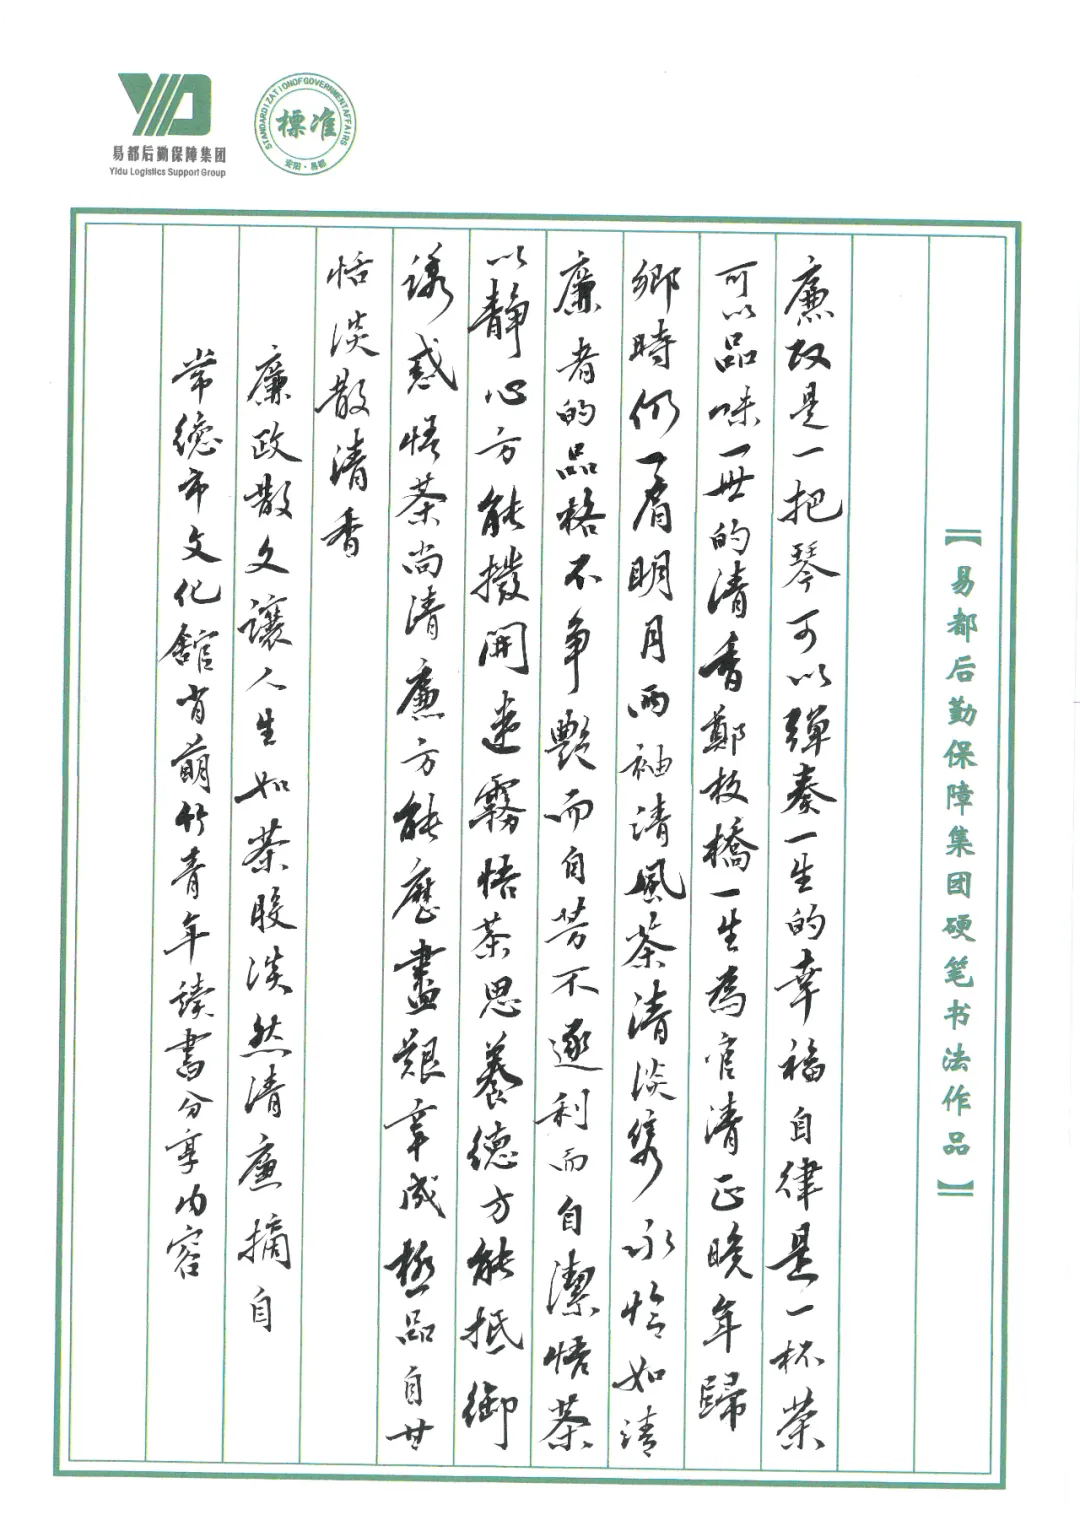 易都后勤保障集团
Yidu Logistics Support Group
STANDARDIZATIONOFGOVERNMENTAFFAIRS
標准
安阳·易都
【易都后勤保障集团硬笔书法作品】
廉政是一把琴可以弹奏一生的幸福自律是一杯茶
可以品味一世的清香鄭板橋一生為官清正晚年歸
鄉時仍一肩明月两袖清風茶清淡隽永恰如清
廉者的品格不争艷而自芳不逐利而自潔悟茶
以静心方能撥開迷霧悟茶思養德方能抵御
誘惑悟茶尚清廉方能歷盡艱辛成極品自甘
恬淡散清香
廉政散文讓人生如茶般淡然清廉摘自
常德市文化館肖萌竹青年读書分享内容